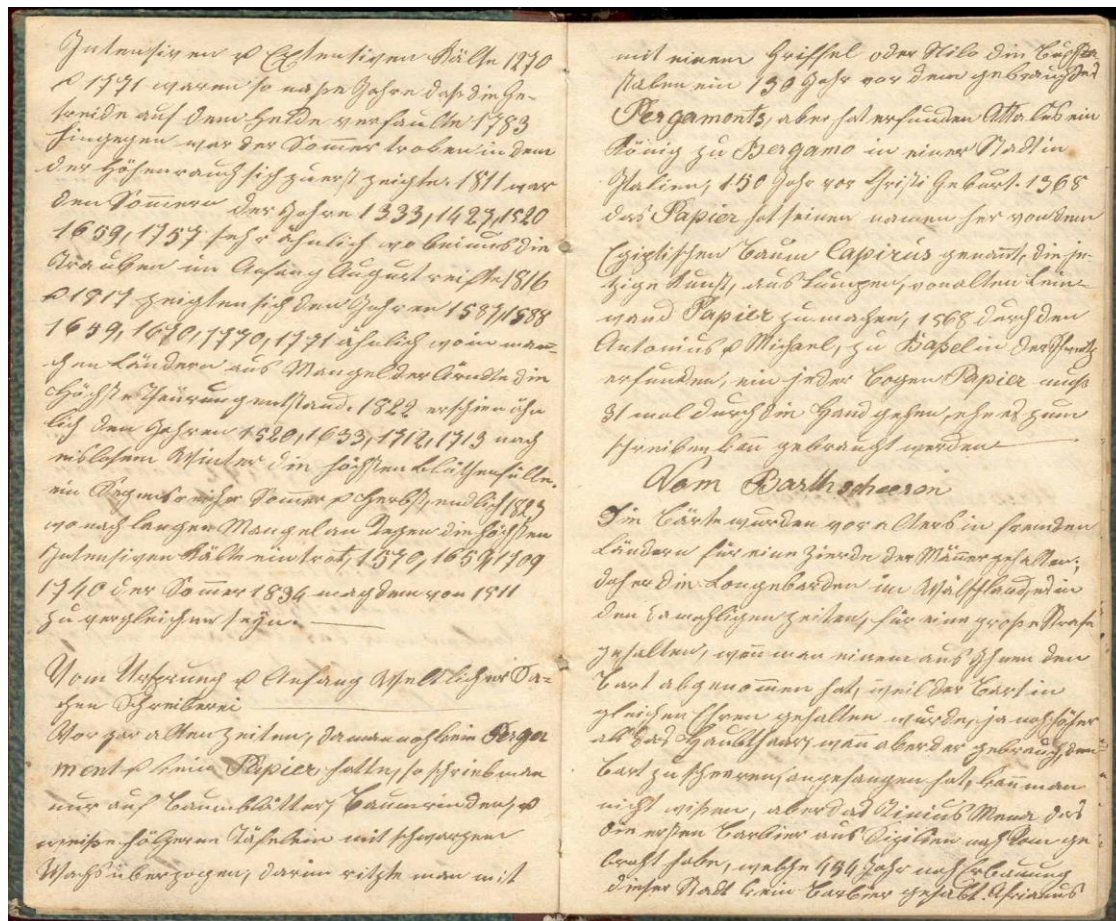 Intensiven & Extensiven Kälte 1270
& 1771 waren so nasse Jahre daß die Ge-
treide auf dem Felde verfaulte 1783
hingegen war der Sommer troken in dem
der Höhenrauch sich zuerst zeigte. 1811 war
den Somern der Jahre 1333, 1427, 1520
1659, 1757 sehr ähnlich wo bei uns die
Trauben im Anfang August reifte, 1816
& 1817 zeigten sich den Jahren 1587, 1588
1659, 1670, 1770, 1771 ähnlich wo in man-
chen Ländern aus Mangel der Ärndte die
Höchste Theurung entstand. 1822 erschien ähn
lich den Jahren 1520, 1633, 1712, 1713 nach
eislosem Winter die höchsten Blüthenfülle.
ein Regensreicher Somer & Herbst, endlich 1823
wo nach langer Mangel an Regen die höchsten
Intensiven Kälte eintrat, 1570, 1659, 1709
1740 der Somer 1834 mag dem von 1811
zu vergleichen seyn.
Vom Ursprung & Anfang Weltlicher Sa-
chen Schreiberei
Vor gar alten Zeiten, da man noch kein Perga
ment & kein Papier hatte, so schrieb man
nur auf Baumblätter, Baumrinden, &
weisse hölzerne Täfelein mit schwarzem
Wachs überzogen, darin ritzte man mit
mit einem Griffel oder Stilo die Buchsta
staben ein 150 Jahr vor dem gebrauch des
Pergaments, aber hat erfunden Attalus ein
König zu Bergamo in einer Stadt in
Italien, 150 Jahr vor Christi Geburt. 1368
das Papier hat seinen namen her von dem
Egiptischen Baum Capirus genant, die je-
tzige Kunst, aus Lumpen, von alten Lein-
wand Papier zu machen, 1568 durch den
Antonius & Michael, zu Basel in der Schweitz
erfunden, ein jeder Bogen Papier muß
31 mal durch die Hand gehen, ehe es zum
schreiben kan gebraucht werden
Vom Barthscheeren
Die Bärte wurden vor alters in fremden
Ländern für eine Zierde der Mäner gehalten;
daher die Longebarden im Wälschland, es in
den damahligen Zeiten, für eine große Strafe
gehalten, wan man einem aus Ihnen den
Bart abgenomen hat, weil der Bart in
gleichen Ehren gehalten wurde, ja noch höher
als das Haubthaar, wan aber der gebrauch, den
Bart zu scheeren, angefangen hat, kan man
nicht wißen, aber das Mena das
die ersten Barbier aus Sicilien nach Rom ge
bracht habe, welche 454 Jahr nach Erbauung
dieser Stadt kein Barbier gehabt.